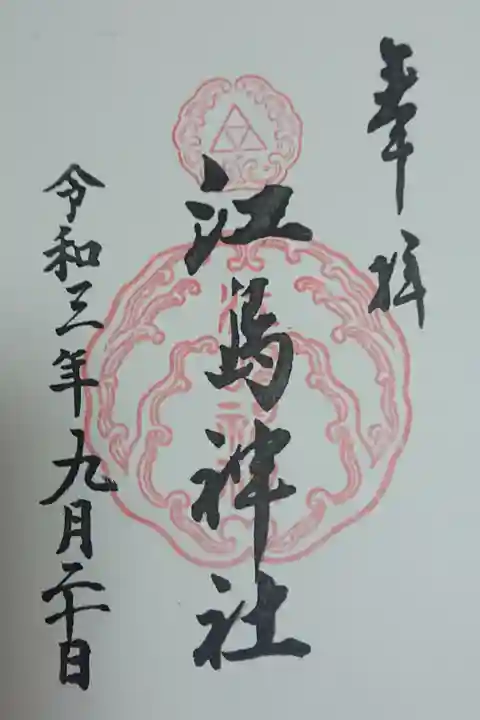 奉拝
江島神社
令和三年九月二十日